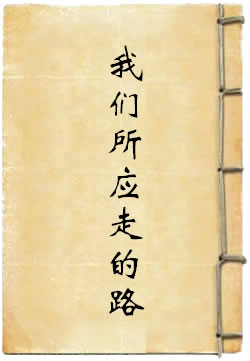 我们所应走的路